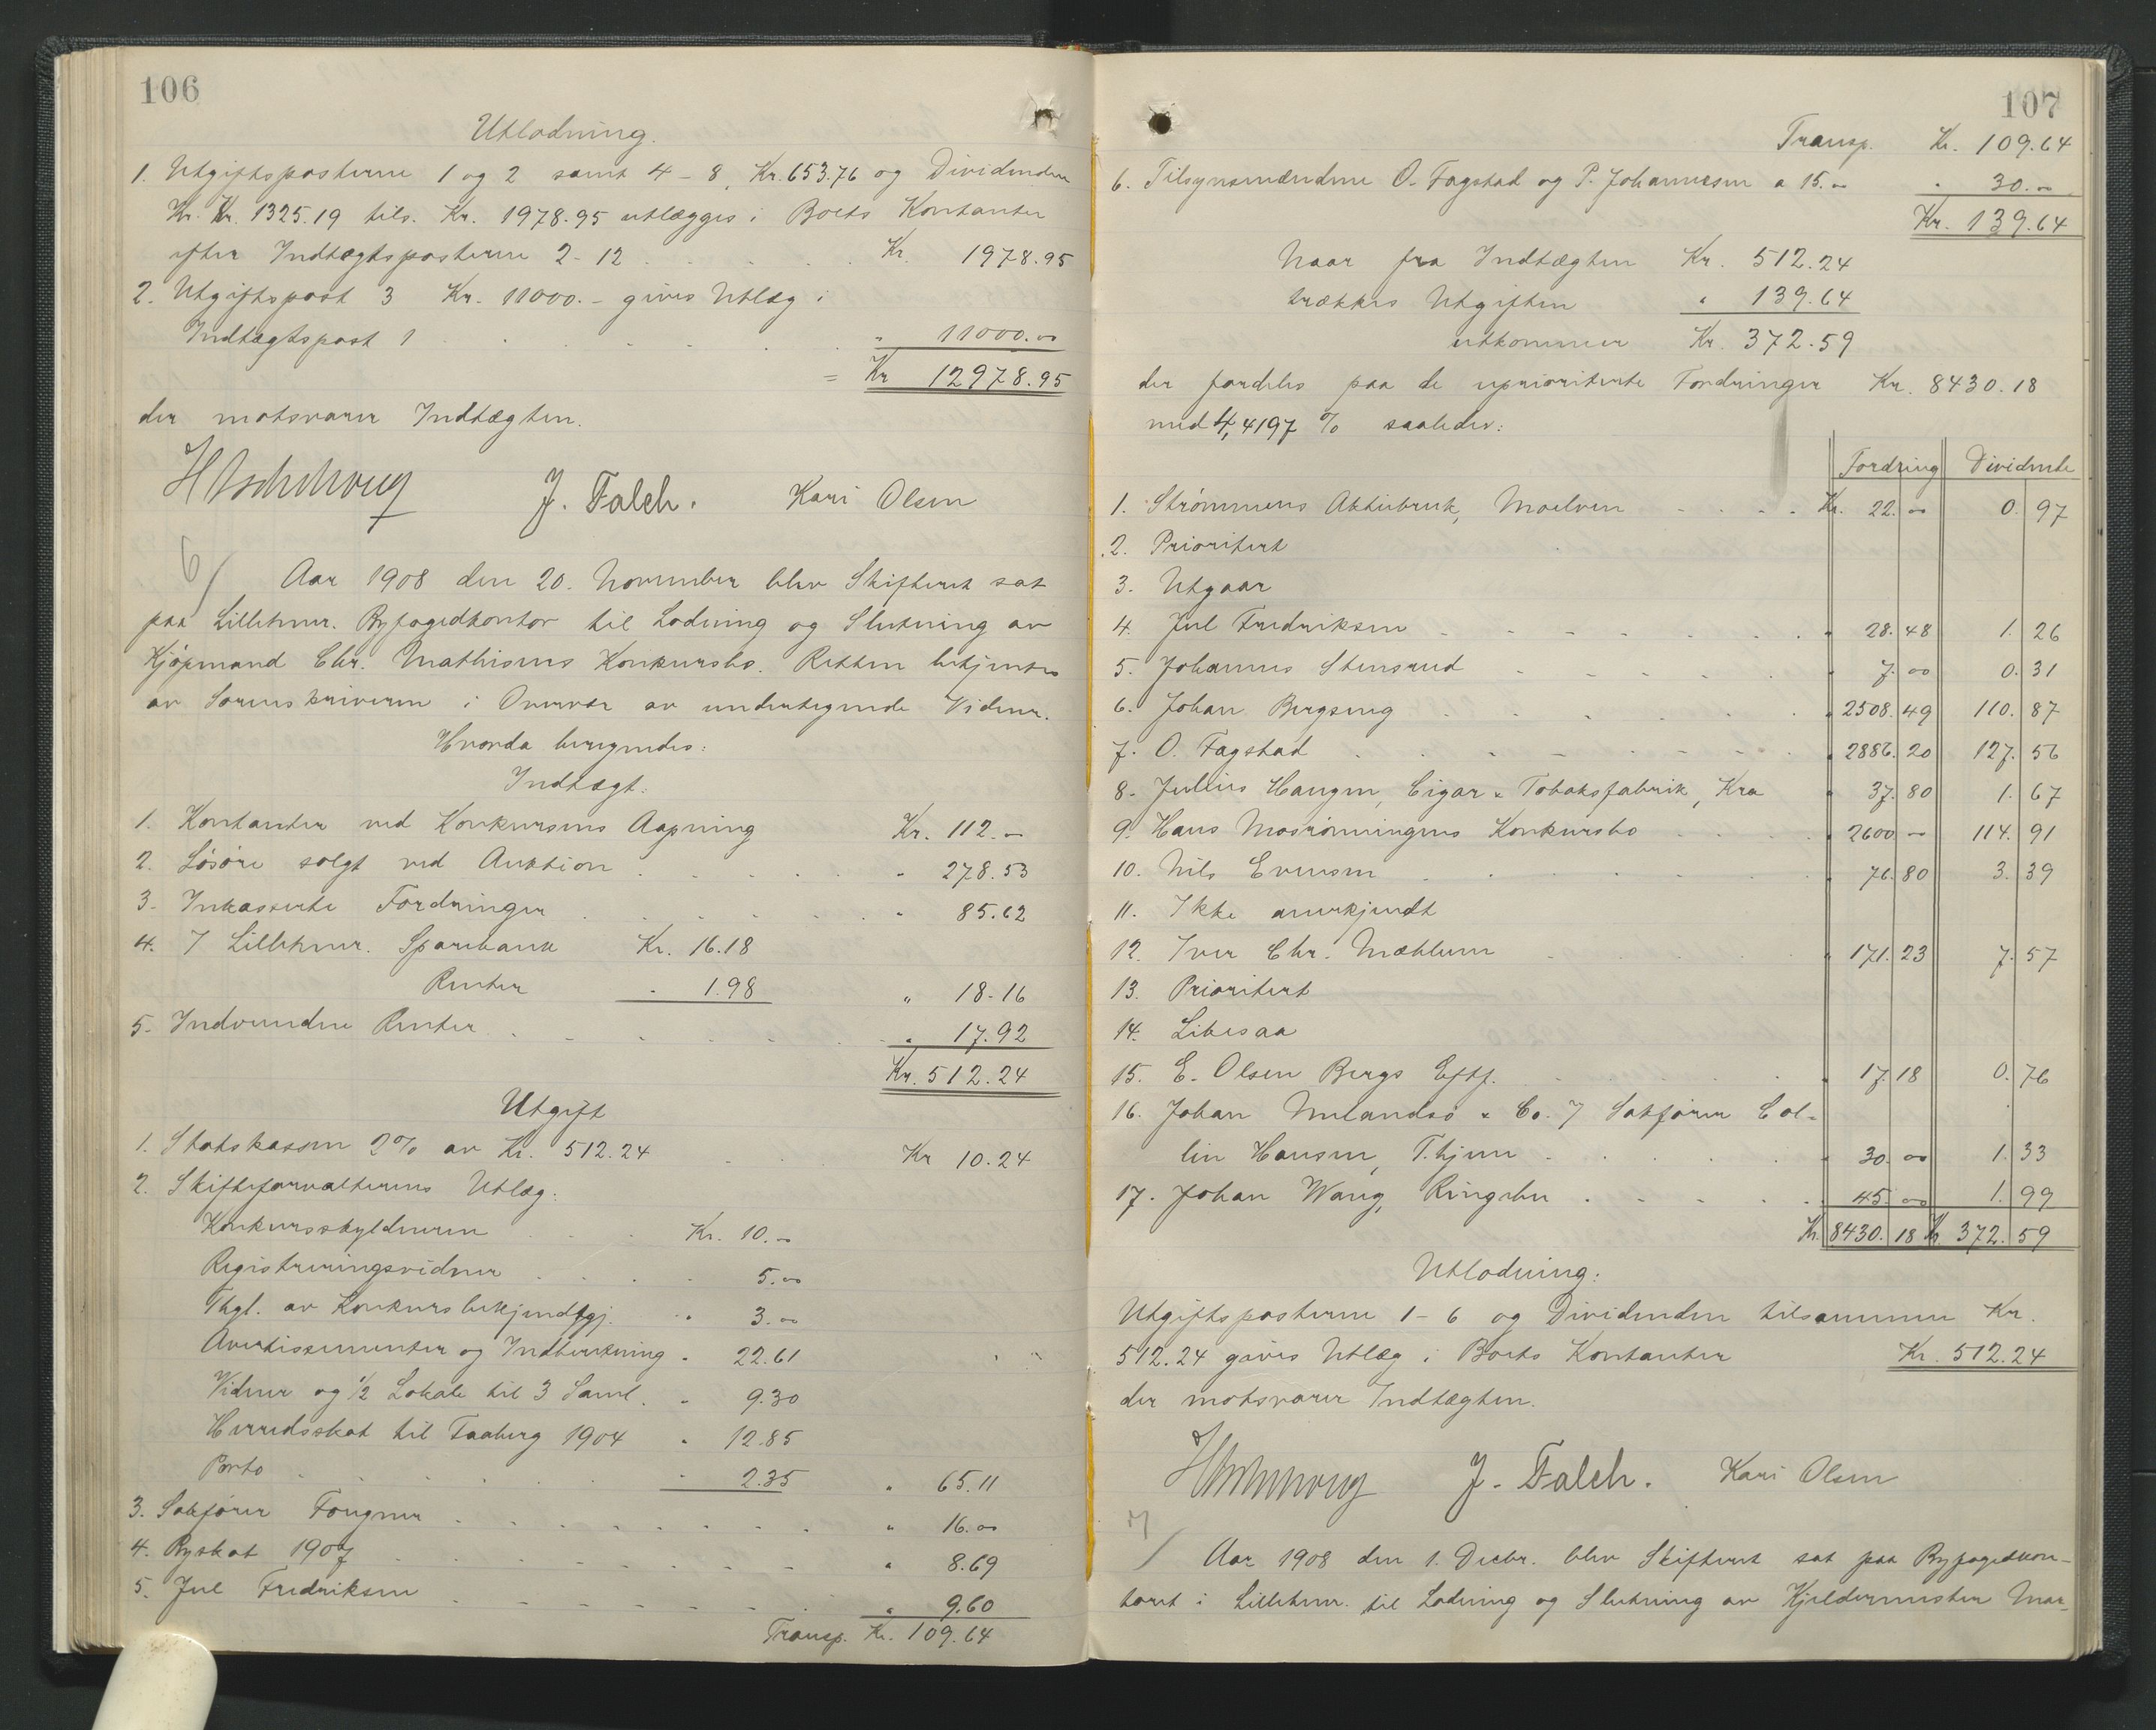 106
Utlodning.
1. Utgiftsposterne 1 og 2 samt 4-8, Kr. 653.76 og Dividenden
Kr. Kr. 1325.19 tils. Kr. 1978.95 utlægges i Boets Kontanter
efter Indtægtsposterne 2-12 . . . . Kr. 1978.95
2. Utgiftspost 3 Kr. 11000.- gives Utlæg i
Indtægtspost 1 . . . . . . " 11000.00
= Kr 12978.95
der motsvarer Indtægten.
J. Falch. Kari Olsen
6/ Aar 1908 den 20. November blev Skifteret sat
paa Lillehmr. Byfogedkontor til Lodning og Slutning av
Kjøpmand Chr. Mathisens Konkursbo. Retten betjentes
av Sorenskriveren i Overvær av undertegnede Vidner.
Hvorda beregnedes:
Indtægt:
1. Kontanter ved Konkursens Aapning Kr. 112.-
2. Løsøre solgt ved Auktion . . . . . " 278.53
3. Inkasserte Fordringer . . . . . . " 85.62
4. I Lillehmr. Sparebank Kr. 16.18
Renter " 1.98 " 18.16
5. Indvundne Renter . . . . . . . " 17.92
Kr. 512.24
Utgift
1. Statskassen 2% av Kr. 512.24 . . . Kr 10.24
2. Skifteforvalterens Utlæg:
Konkursskyldneren . . . Kr. 10.-
Registreringsvidner . . . . 5.00
Thgl. av Konkursbekjendtgj. " 3.00
Avertissementer og Indberetning " 22.61
Vidner og ½ Lokale til 3 Saml. " 9.30
Herredsskat til Faaberg 1904 " 12.85
Porto . . . . . . " 2.35 " 65.11
3. Sakfører Fougner . . . . . . . . " 16.00
4. Byskat 1907 . . . . . . . . " 8.69
5. Jul Fredriksen . . . . . . . " 9.60
Transp. Kr. 109.64
107
Transp. Kr. 109.64
6. Tilsynsmændene O. Fagstad og P. Johannesen a 15.00 " 30.00
Kr. 139.64
Naar fra Indtægten Kr. 512.24
trækkes Utgiften " 139.64
utkommer Kr. 372.59
der fordeles paa de uprioriterte Fordringer Kr. 8430.18
med 4,4197 % saaledes:
Fordring Dividende
1. Strømmens Aktiebruk, Moelven . . . . Kr. 22.00 0.97
2. Prioritert
3. Utgaar
4. Jul Fredriksen . . . . . . . " 28.48 1.26
5. Johannes Stensrud . . . . . " 7.00 0.31
6. Johan Bergseng . . . . . . " 2508.49 110.87
7. O. Fagstad . . . . . . . " 2886.20 127.56
8. Jullius Haugen, Cigar & Tobaksfabrik, Kra " 37.80 1.67
9. Hans Mosrønningens Konkursbo . . . . " 2600 - 114.91
10. Nils Evensen . . . . . . " 76.80 3.39
11. Ikke anerkjendt
12. Iver Chr. Mæhlum . . . . . " 171.23 7.57
13. Prioritert
14. Likesaa
15. E. Olsen Bergs Eftf. . . . . . " 17.18 0.76
16. Johan Melandsø & Co. / Sakfører Col-
lin Hansen, T.hjem . . . . . " 30.00 1.33
17. Johan Wang, Ringebu . . . . . " 45.00 1.99
Kr. 8430.18 Kr. 372.59
Utlodning:
Utgiftsposterne 1-6 og Dividenden tilsammen Kr.
512.24 gives Utlæg i Boets Kontanter Kr. 512.24
der motsvarer Indtægten.
J. Falch. Kari Olsen
7/ Aar 1908 den 1. Decbr. blev Skifteret sat paa Byfogedkon-
toret i Lillehmr. til Lodning og Slutning av Kjeldermester Mar-